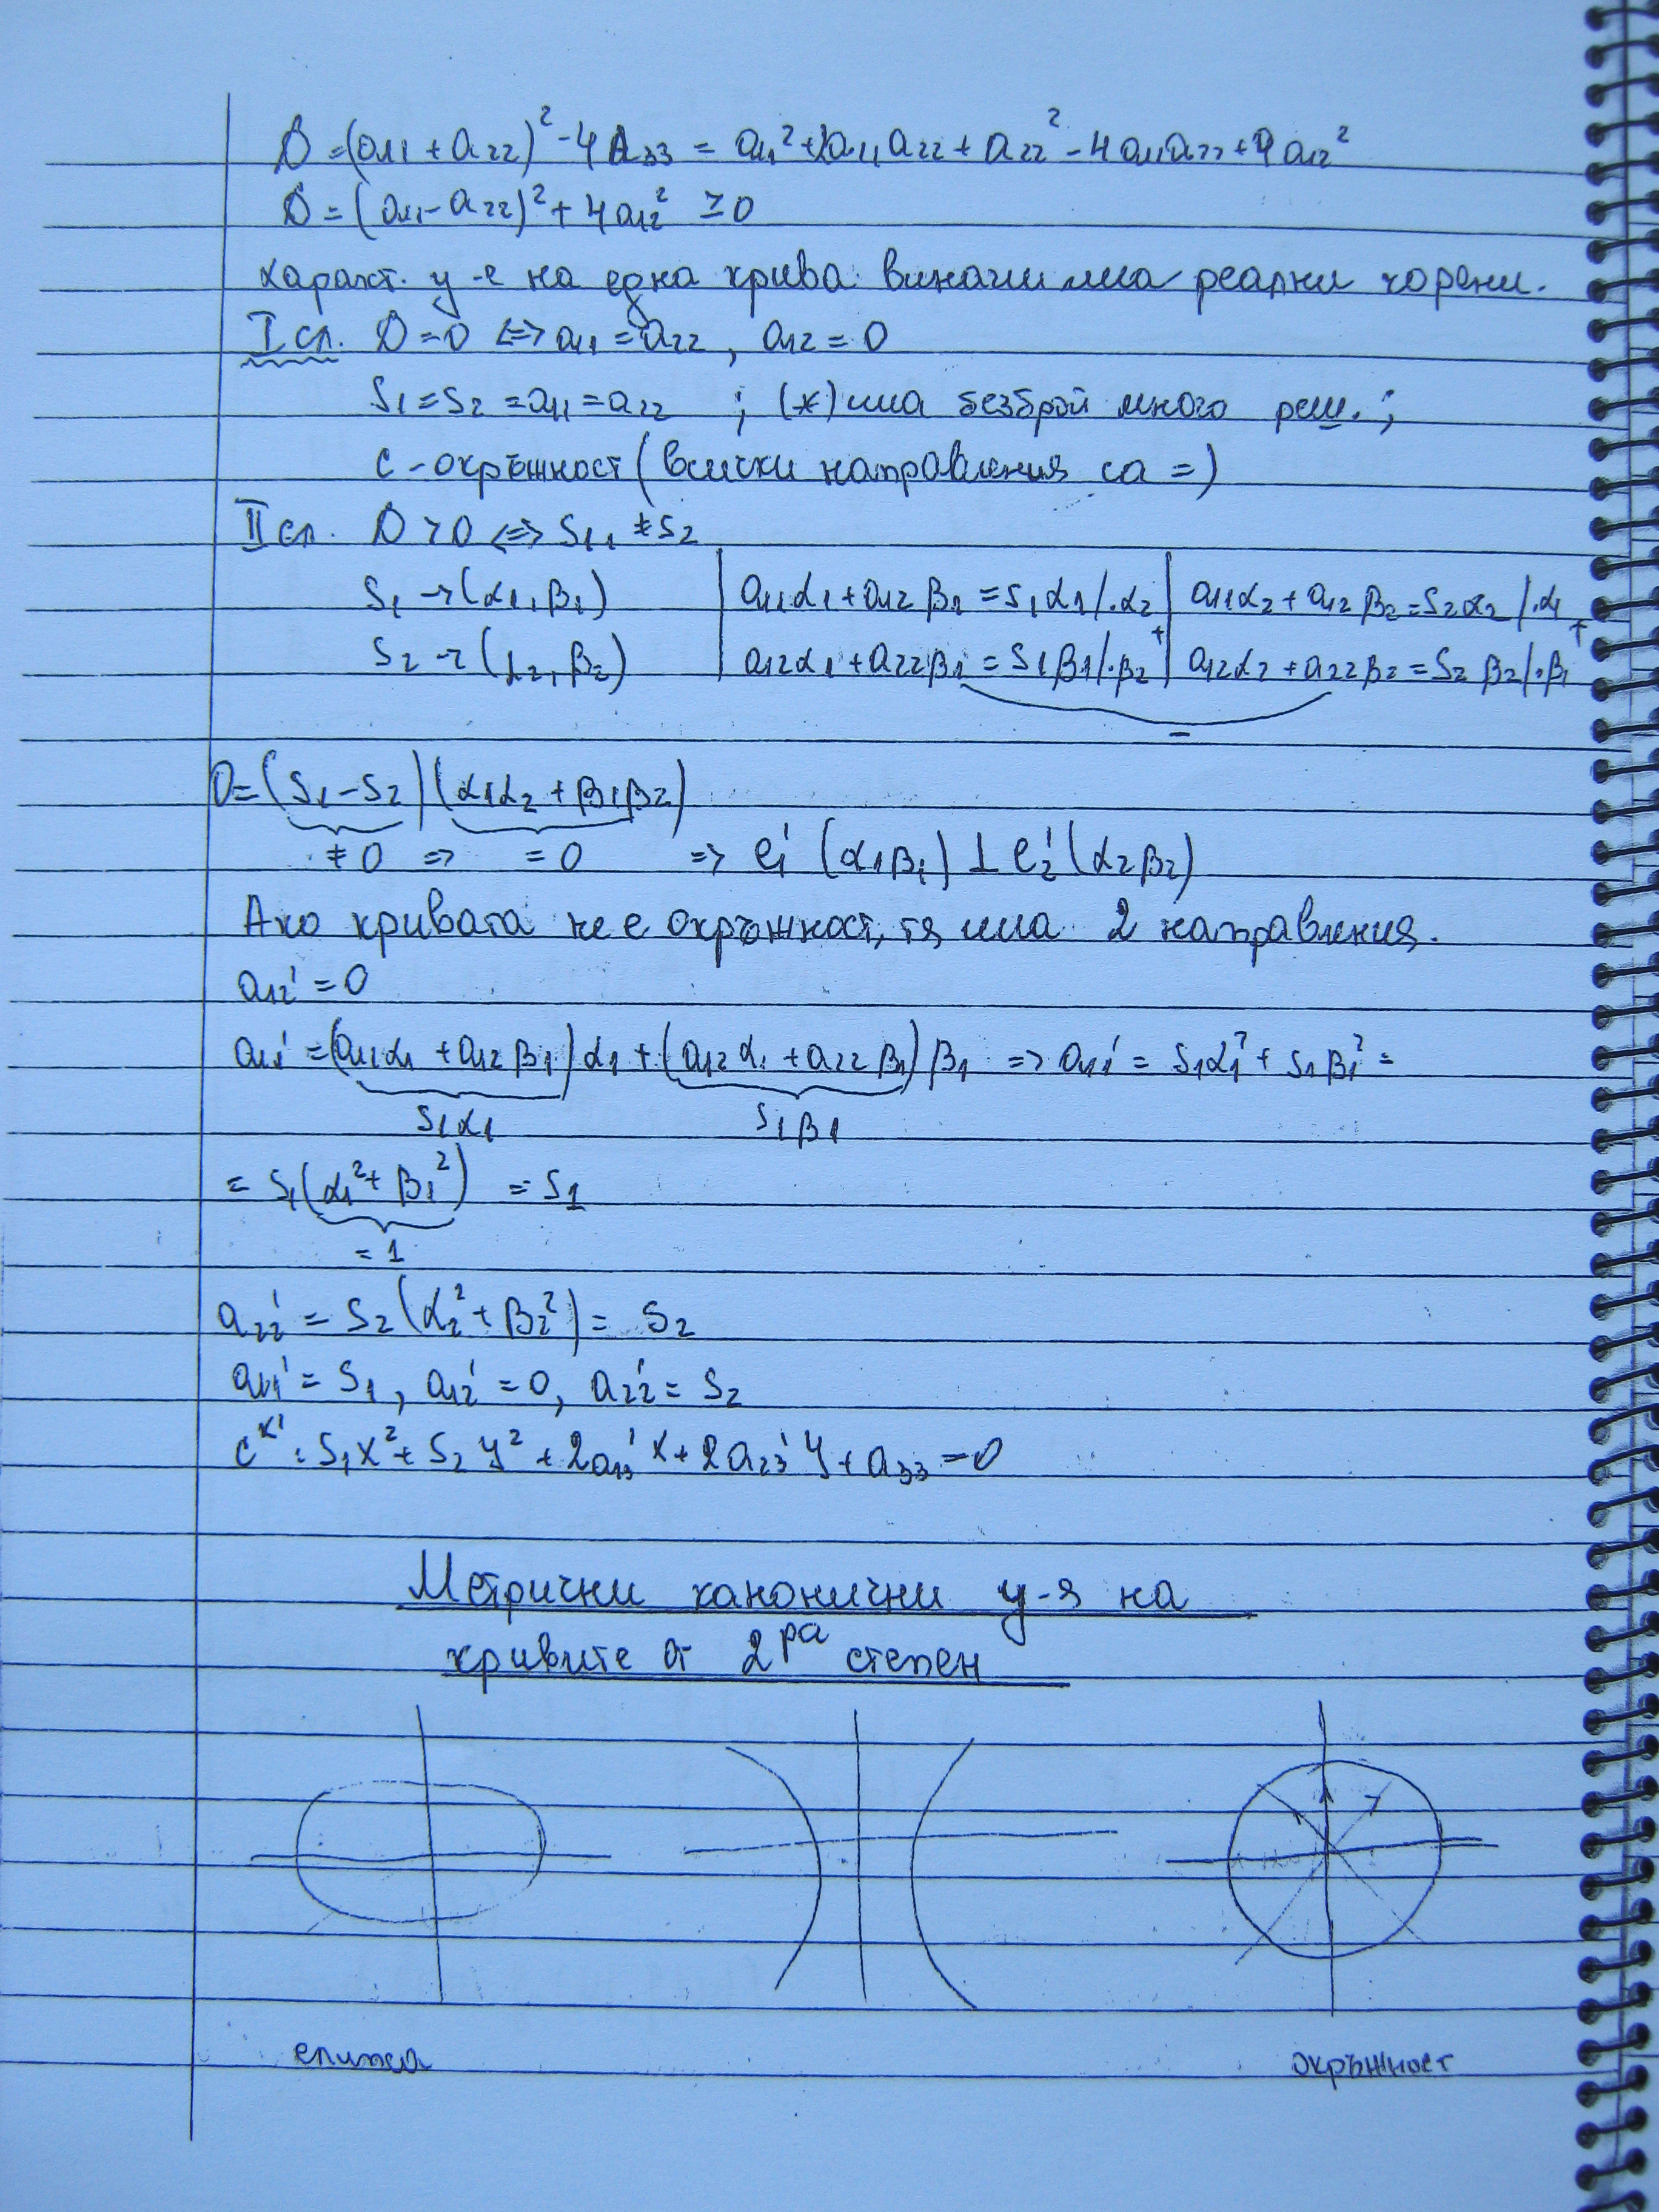 D = (a₁₁ + a₂₂)² - 4A₃₃ = a₁₁² + 2a₁₁a₂₂ + a₂₂² - 4a₁₁a₂₂ + 4a₁₂²
D = (a₁₁ - a₂₂)² + 4a₁₂² ≥ 0
Характ. у-е на една крива винаги има реални корени.
I сл. D = 0 <=> a₁₁ = a₂₂, a₁₂ = 0
s₁ = s₂ = a₁₁ = a₂₂ ; (*) има безброй много реш. ;
c - окръжност (всички направления са =)
II сл. D > 0 <=> s₁ ≠ s₂
s₁ → (α₁, β₁) | a₁₁α₁ + a₁₂β₁ = s₁α₁ /.α₂ | a₁₁α₂ + a₁₂β₂ = s₂α₂ /.α₁
s₂ → (α₂, β₂) | a₁₂α₁ + a₂₂β₁ = s₁β₁ /.β₂ + | a₁₂α₂ + a₂₂β₂ = s₂β₂ /.β₁ +
-
0 = (s₁ - s₂)(α₁α₂ + β₁β₂)
≠ 0 => = 0 => e₁' (α₁β₁) ⊥ e₂' (α₂β₂)
Ако кривата не е окръжност, тя има 2 направления.
a₁₂' = 0
a₁₁' = (a₁₁α₁ + a₁₂β₁)α₁ + (a₁₂α₁ + a₂₂β₁)β₁ => a₁₁' = s₁α₁² + s₁β₁² =
s₁α₁ s₁β₁
= s₁(α₁² + β₁²) = s₁
= 1
a₂₂' = s₂(α₂² + β₂²) = s₂
a₁₁' = s₁, a₁₂' = 0, a₂₂' = s₂
c^K' : s₁x² + s₂y² + 2a₁₃'x + 2a₂₃'y + a₃₃ = 0
Метрични канонични у-я на
кривите от 2ра степен
елипса окръжност